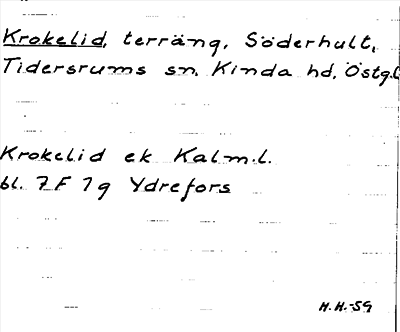 Krokelid, terräng, Söderhult,
Tidersrums sn. Kinda hd, Östg.l
Krokelid ek Kalm.l.
bl. 7 F 1 g Ydrefors
H.H.-59